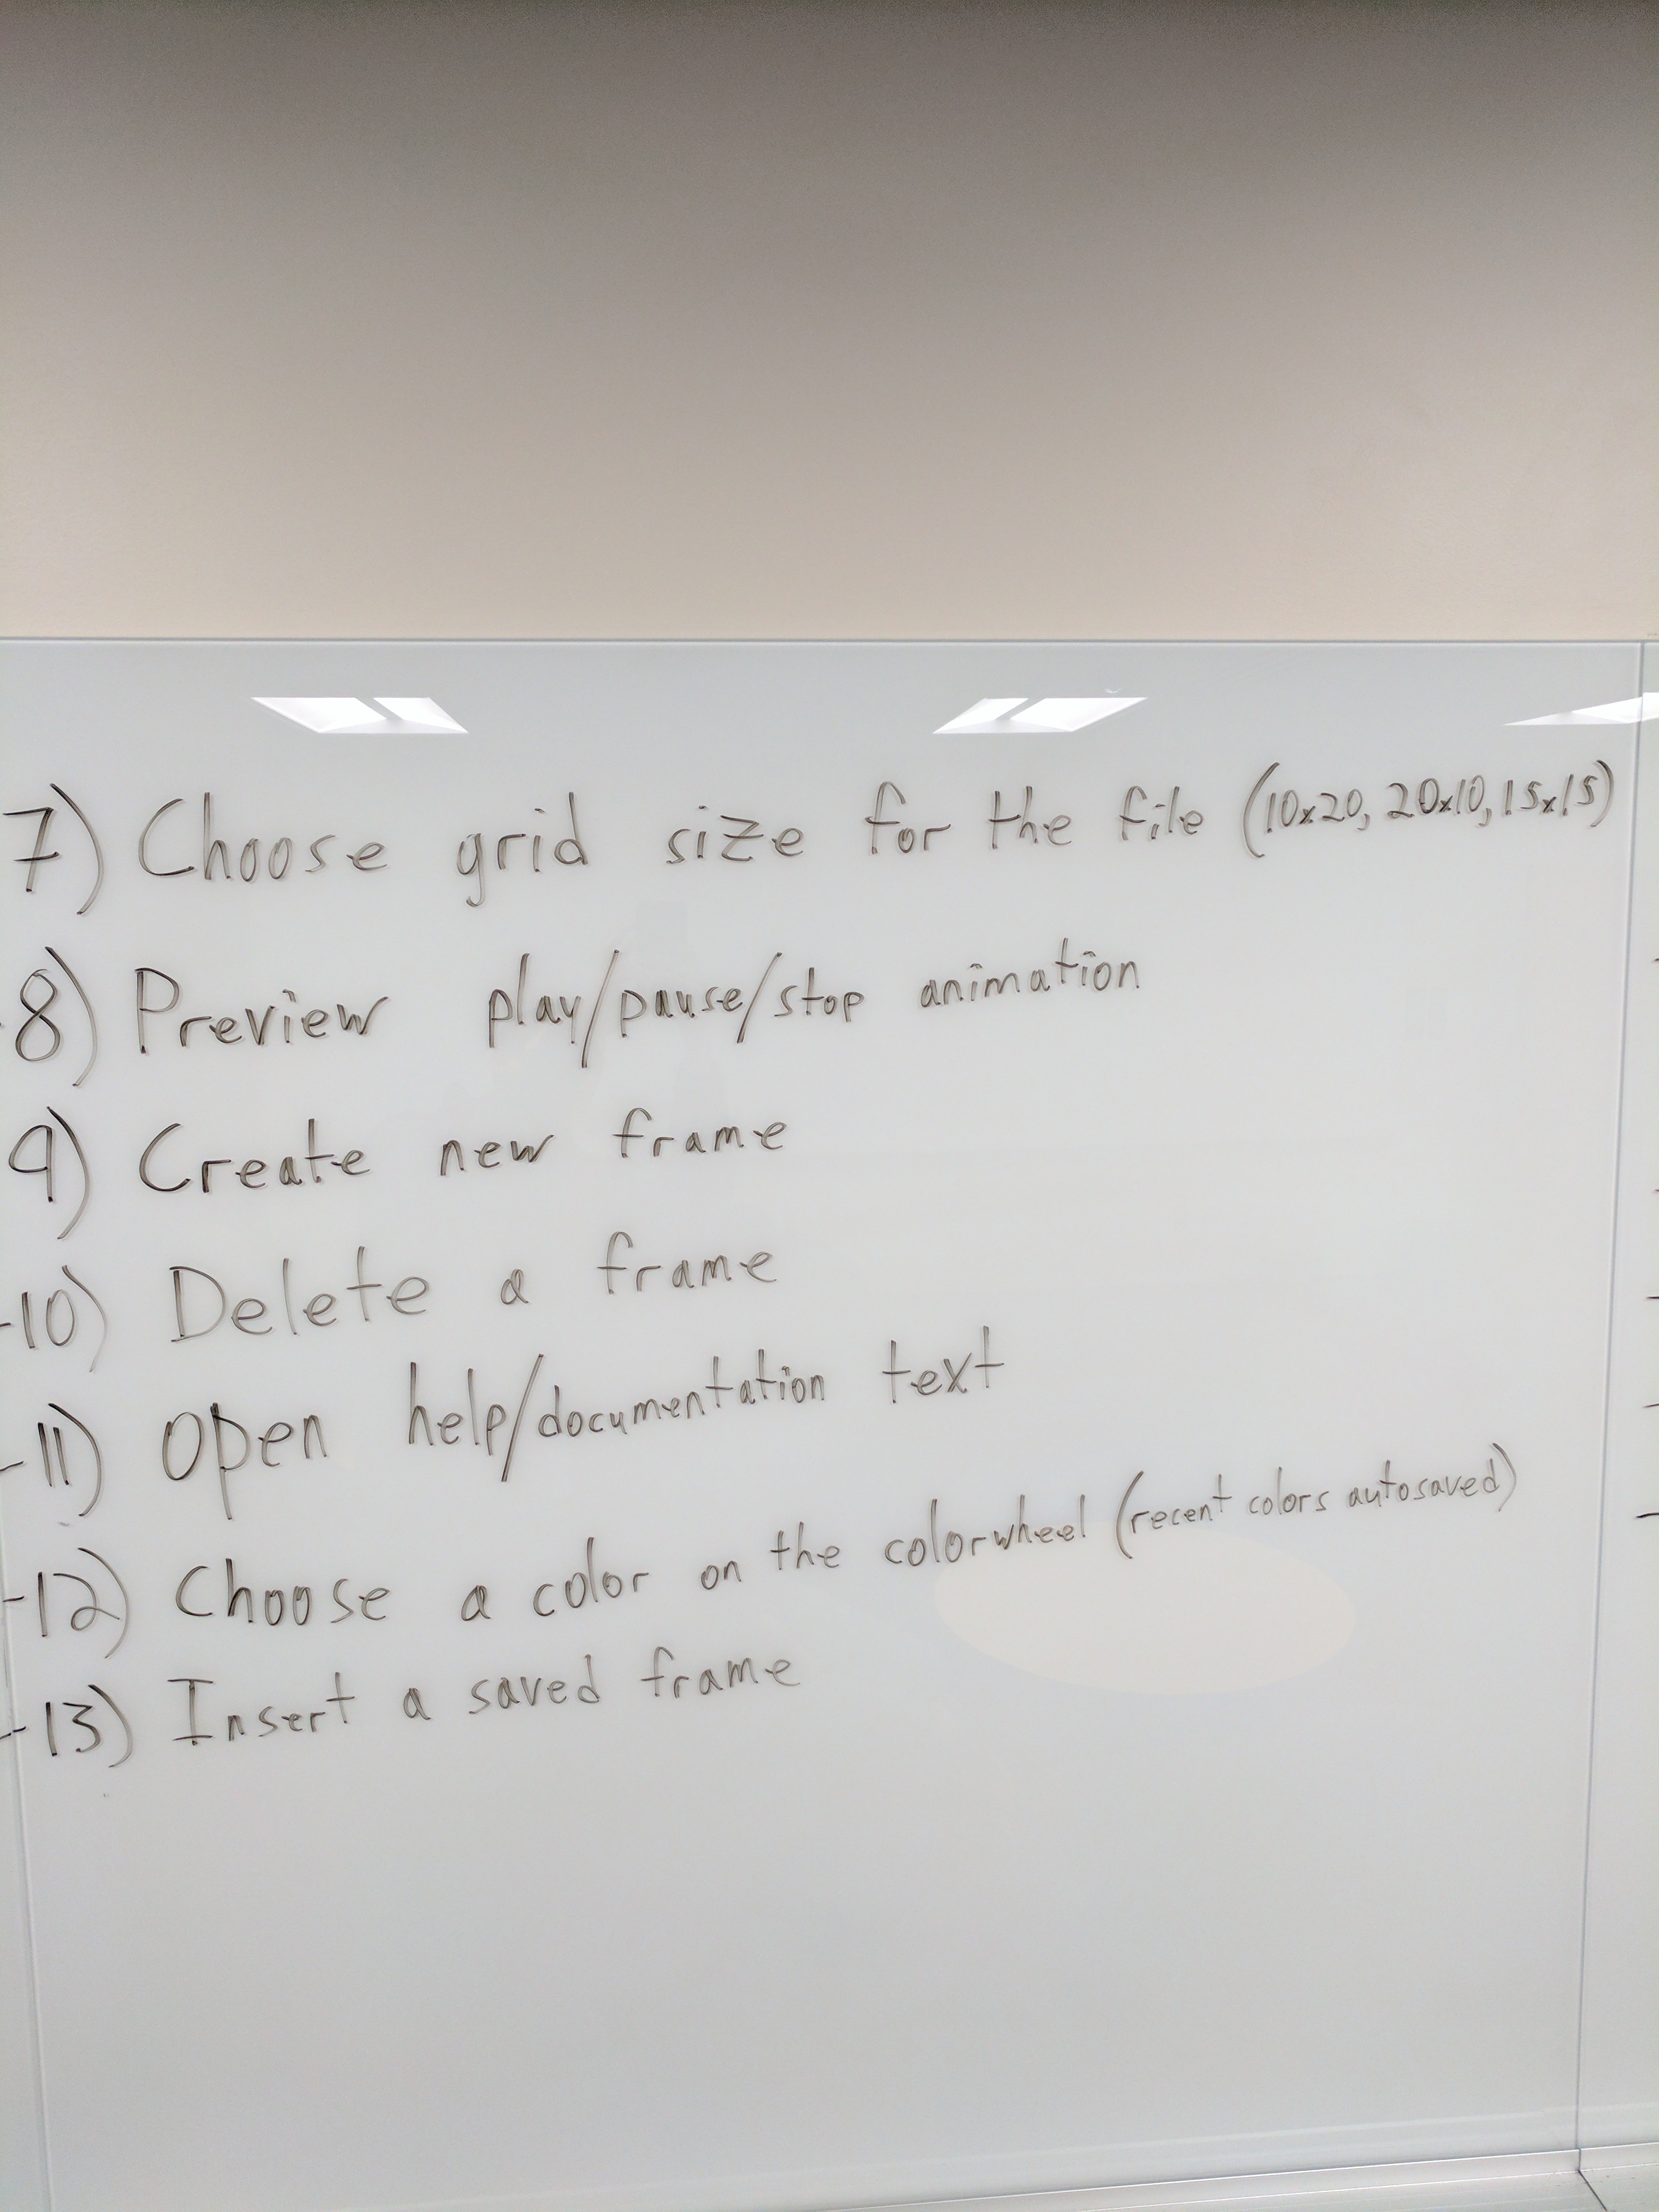 7) Choose grid size for the file (10x20, 20x10, 15x15)
-8) Preview play/pause/stop animation
9) Create new frame
-10) Delete a frame
-11) Open help/documentation text
-12) Choose a color on the colorwheel (recent colors autosaved)
-13) Insert a saved frame